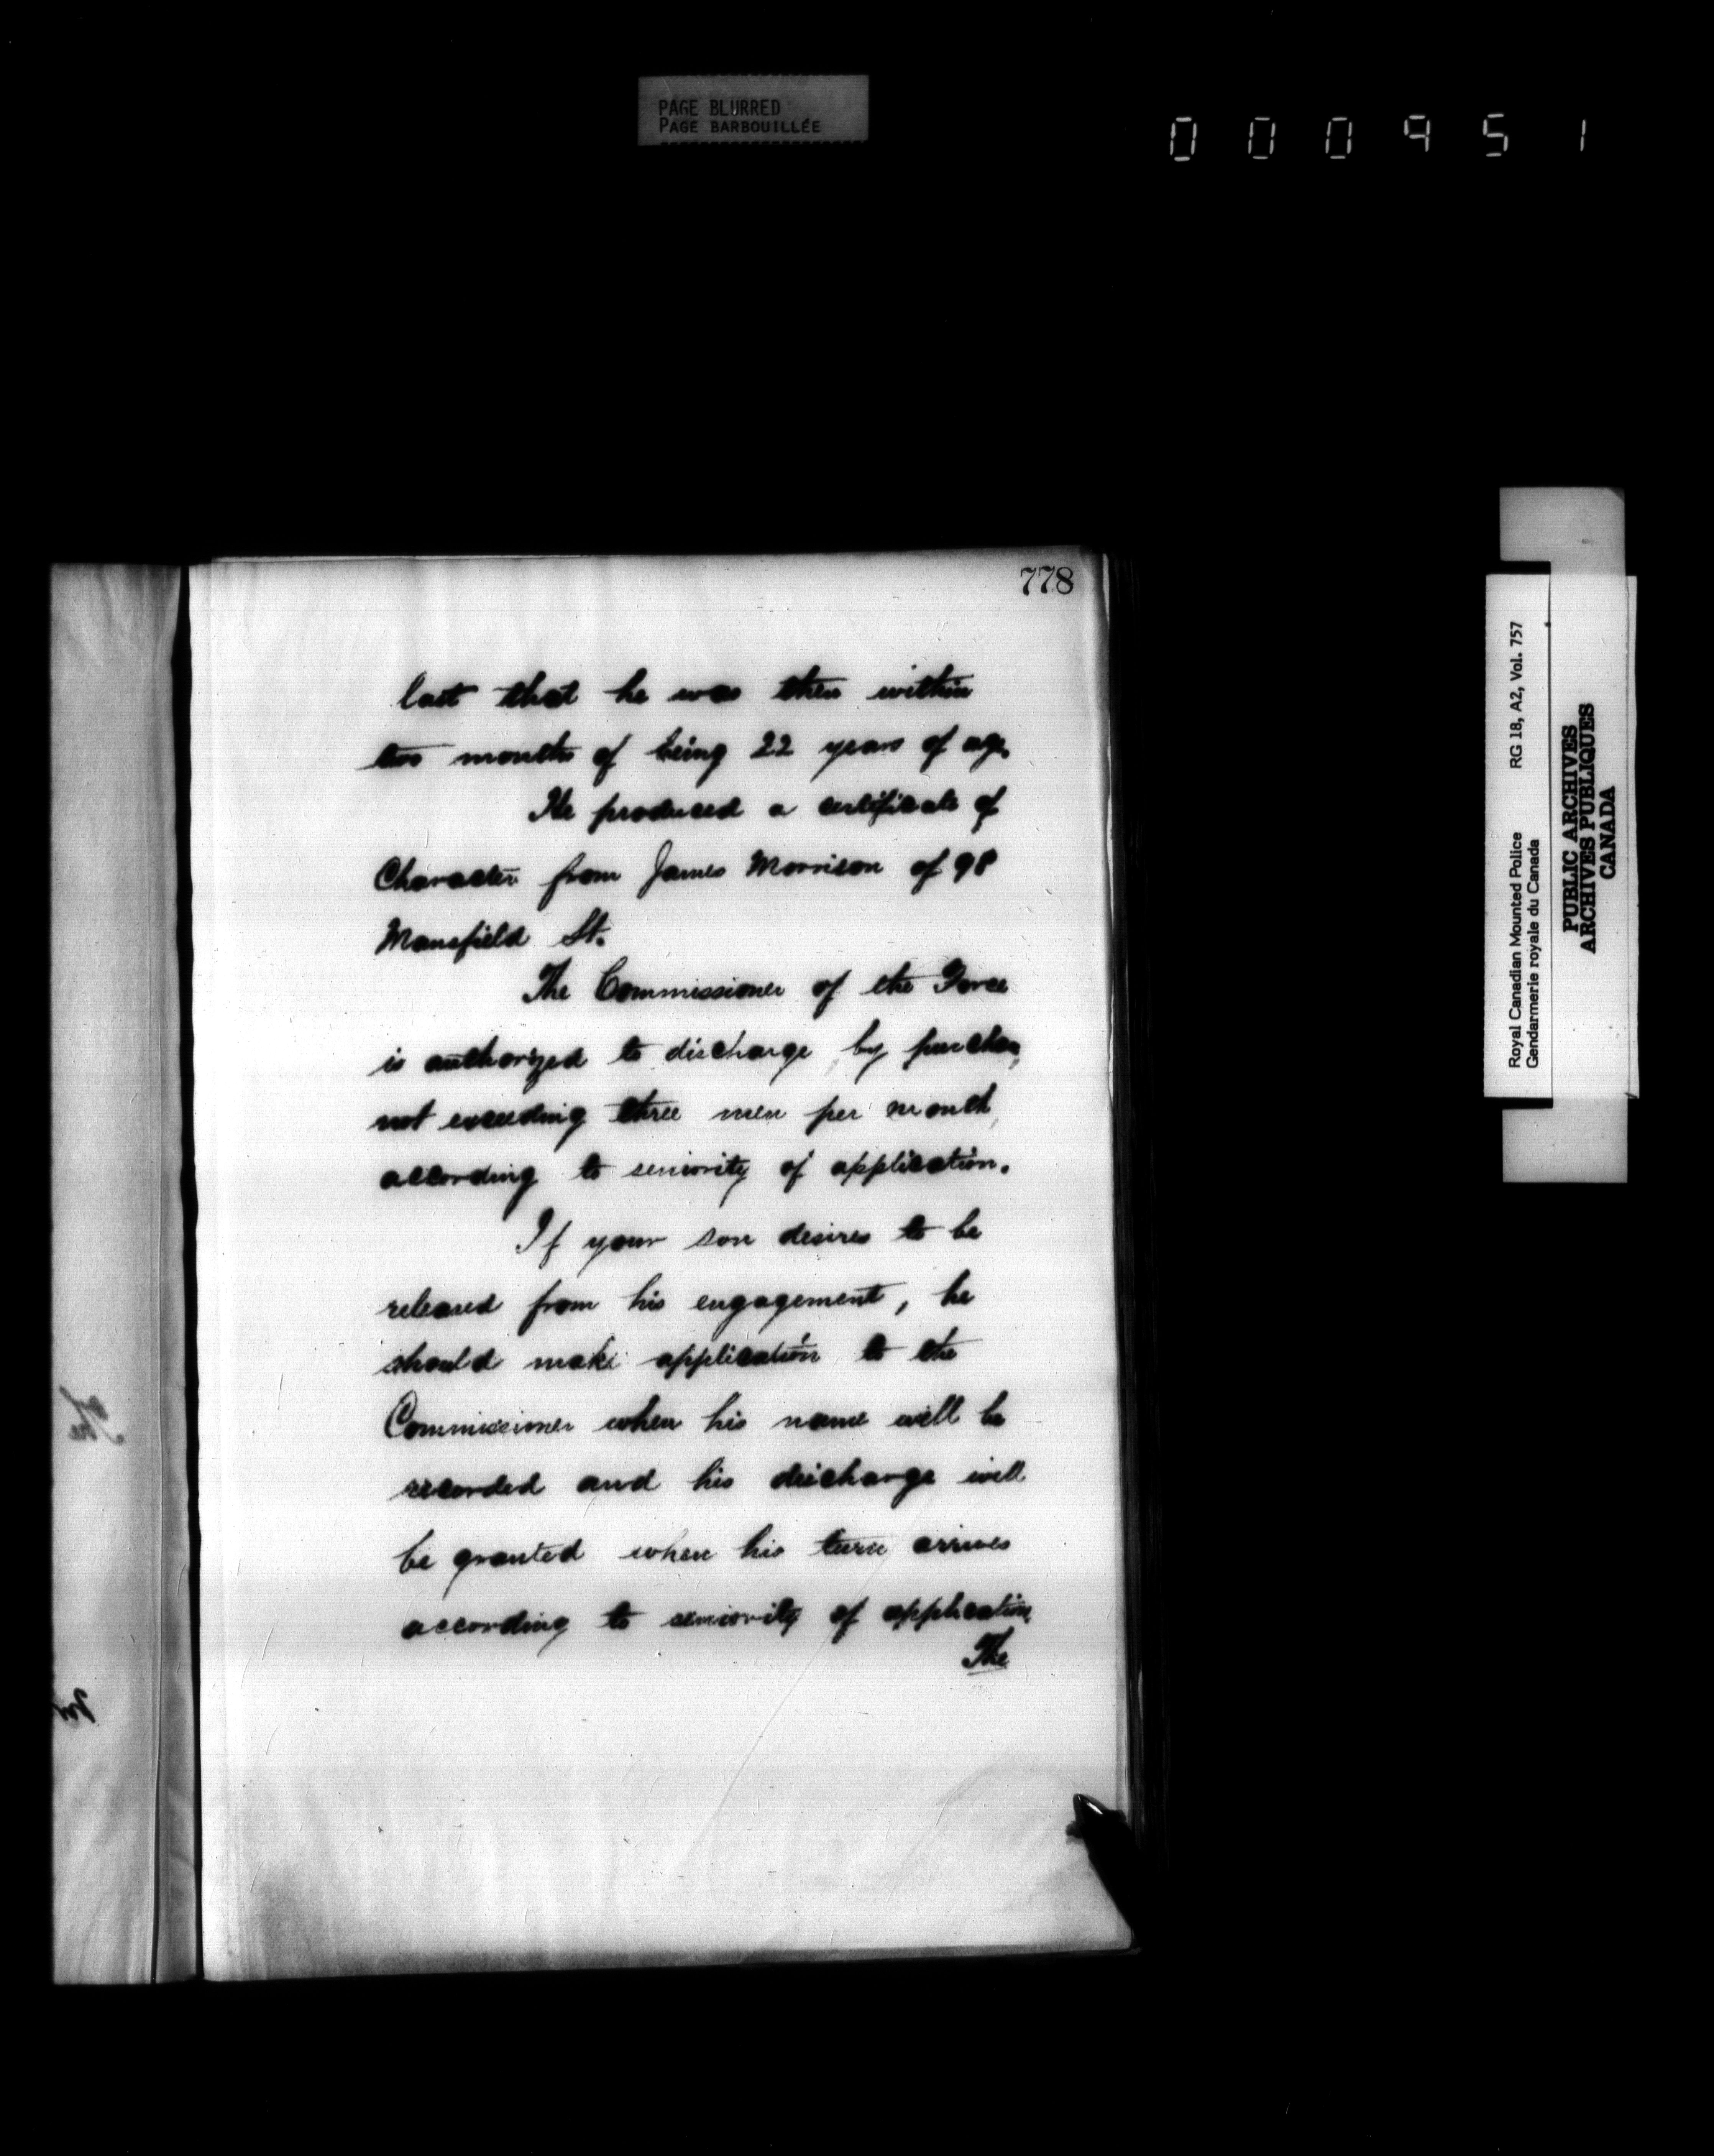 PAGE BLURRED
PAGE BARBOUILLÉE
000951
778
last that he was then within
two months of being 22 years of age.
He produced a certificate of
Character from James Morrison of 98
Mansfield St.
The Commissioner of the Force
is authorized to discharge, by purchase,
not exceeding three men per month,
according to seniority of application.
If your son desires to be
released from his engagement, he
should make application to the
Commissioner when his name will be
recorded and his discharge will
be granted when his turn arrives
according to seniority of application.
The
Royal Canadian Mounted Police RG 18, A2, Vol. 757
Gendarmerie royale du Canada
PUBLIC ARCHIVES
ARCHIVES PUBLIQUES
CANADA